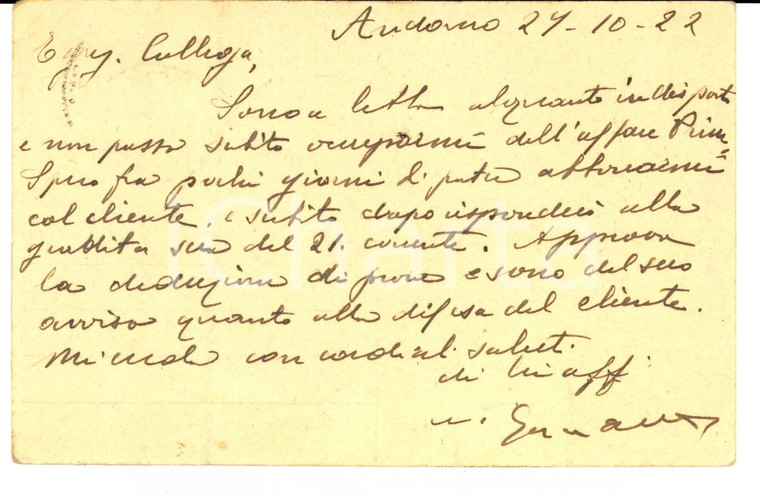 Andorno 24-10-22
Egreg. Collega,
Sono a letto alquanto indisposto
e non posso subito occuparmi dell'affare Prim=
Spero fra pochi giorni di poter abboccarmi
col cliente. e subito dopo risponderò alla
gradita sua del 21. corrente. Approvo
la deduzione di prove e sono del suo
avviso quanto alla difesa del cliente.
Mi creda con cordiali saluti.
di Lei aff